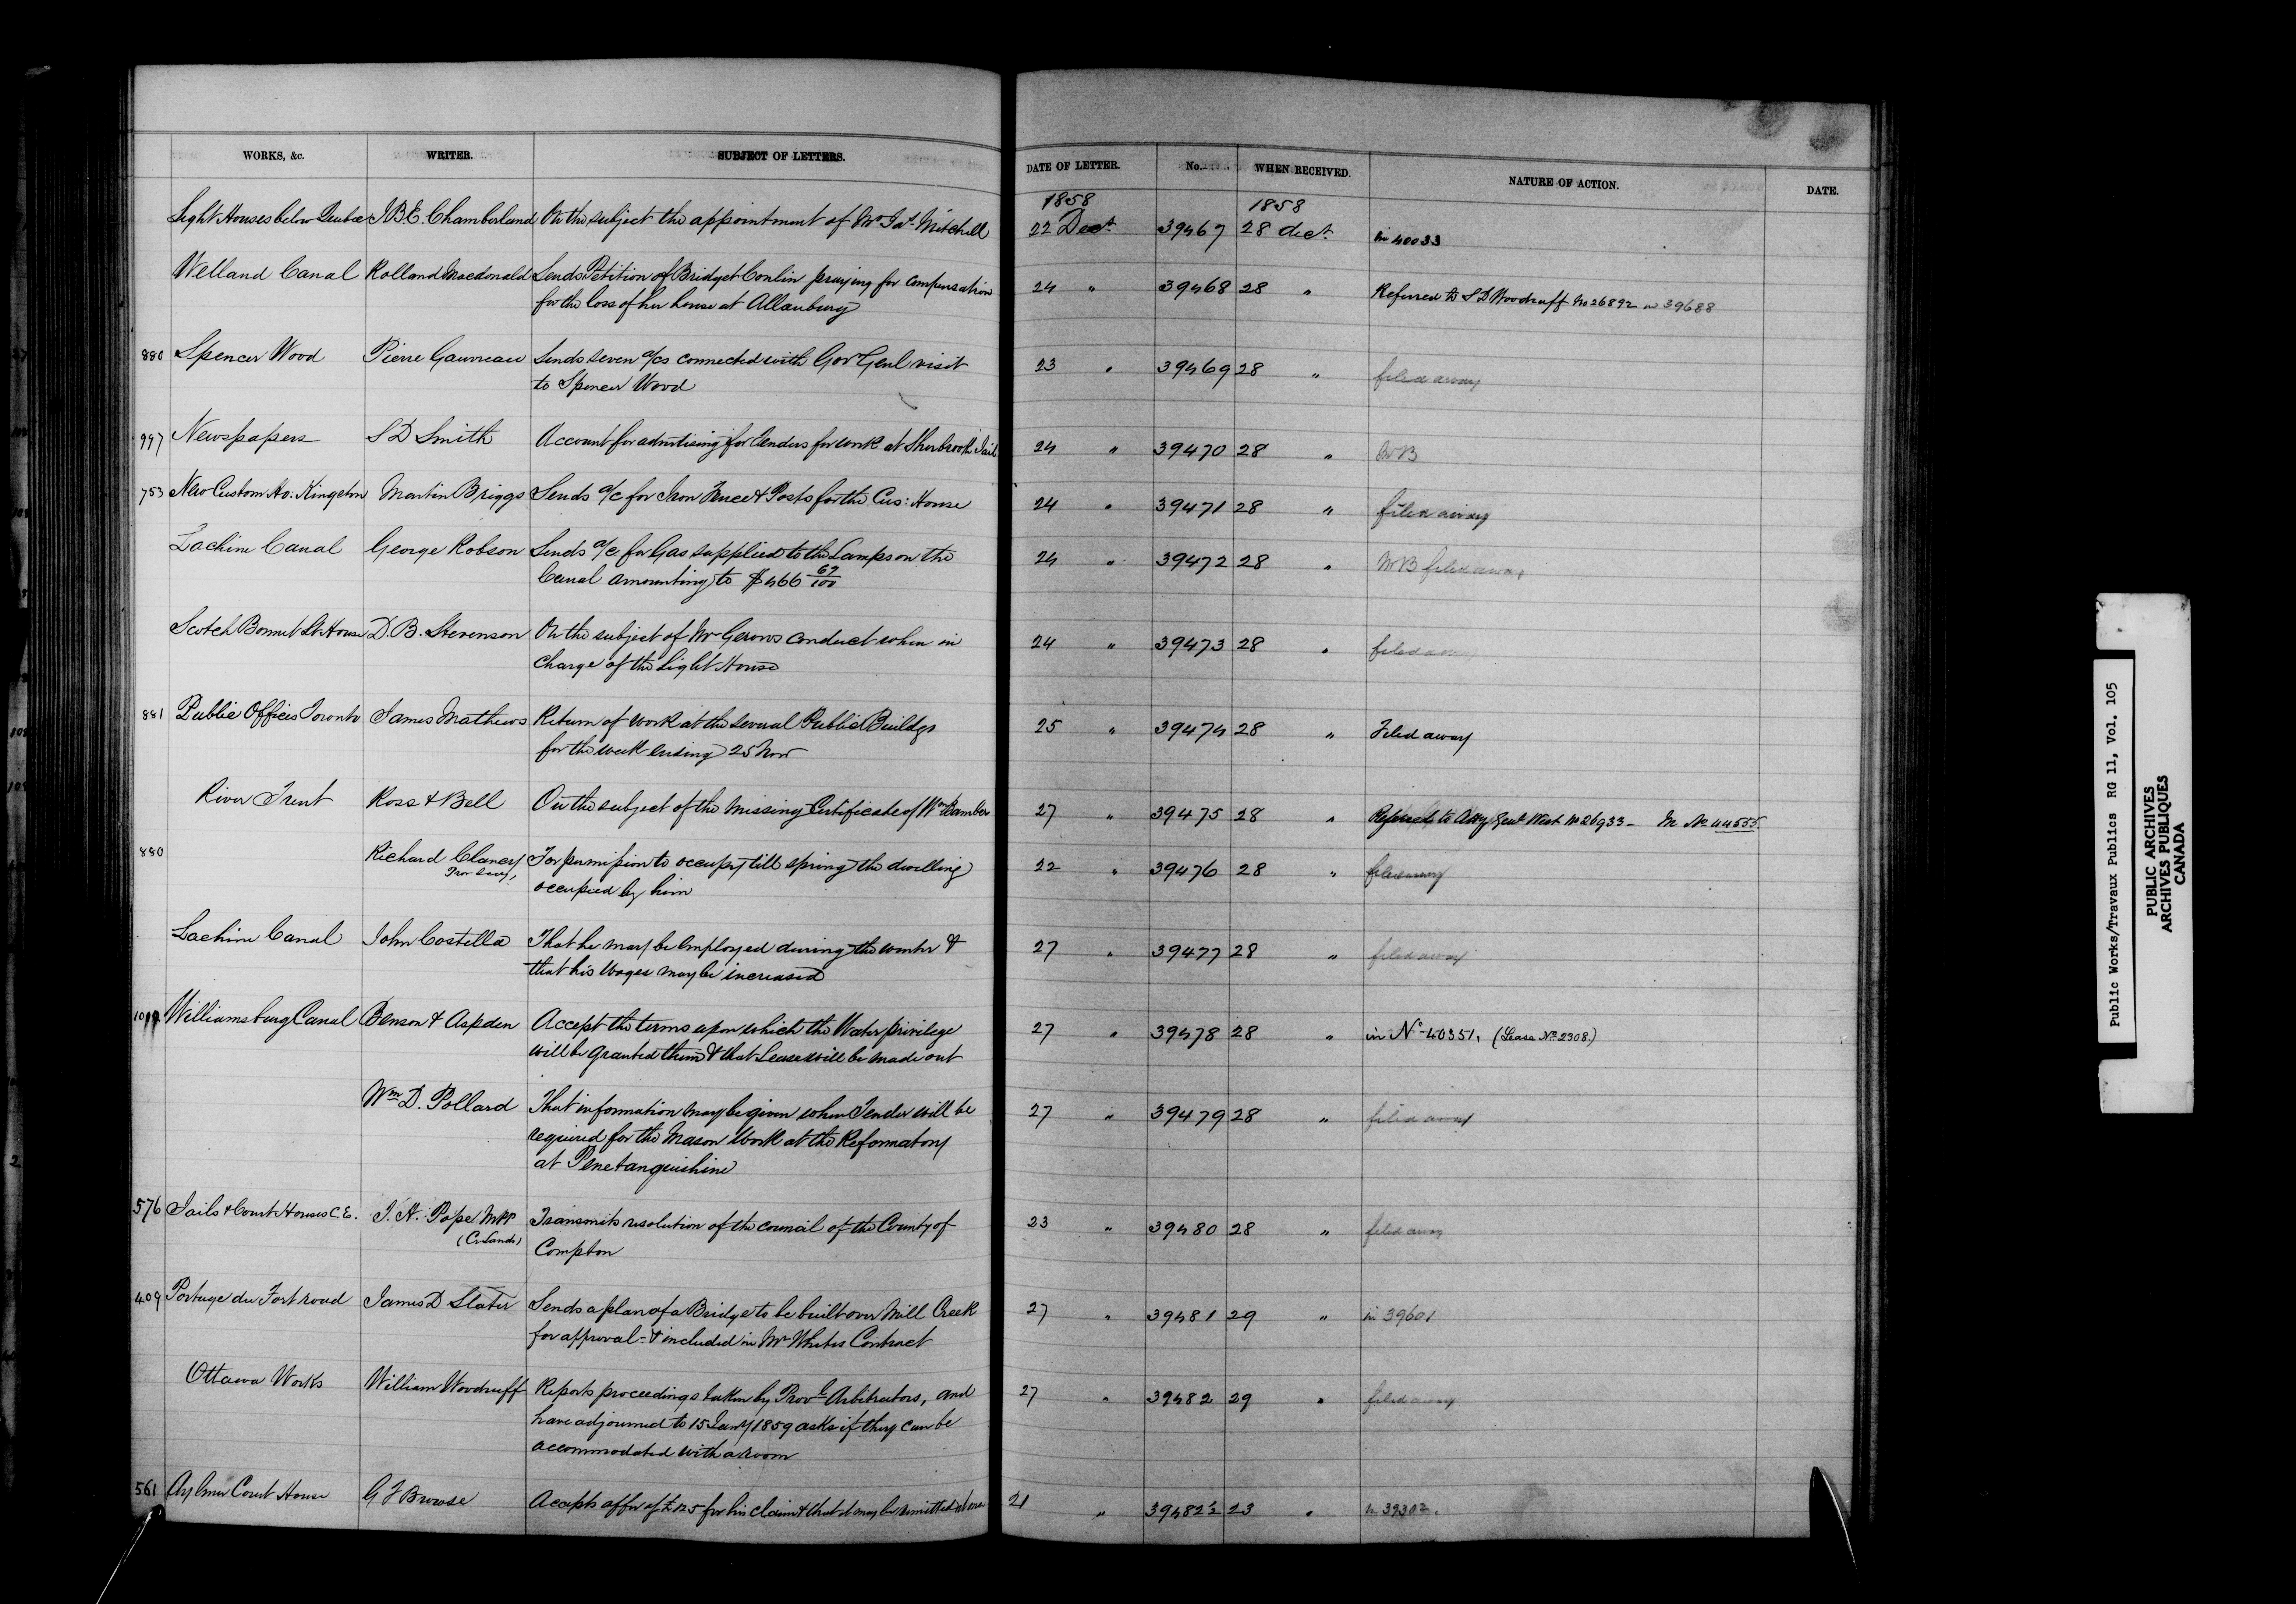 WORKS, &c. WRITER. SUBJECT OF LETTERS. DATE OF LETTER. No. WHEN RECEIVED. NATURE OF ACTION. DATE.
1858 1858
Light Houses below Quebec J.B.E. Chamberland On the subject the appointment of Mr Jas. Mitchell 22 Dect. 39467 28 dect. in 40033
Welland Canal Rolland Macdonald Sends Petition of Bridget Conlin praying for compensation 24 " 39468 28 " Referred to S D Woodruff No 26892 in 39688
for the loss of her house at Allanburg
880 Spencer Wood Pierre Gauvreau Sends seven a/cs connected with Gov Genl visit 23 " 39469 28 " filed away
to Spencer Wood
997 Newspapers S D Smith Account for advertising for Tenders for work at Sherbrooke Jail 24 " 39470 28 "
753 New Custom Ho. Kingston Martin Briggs Sends a/c for Iron Fence & Posts for the Cus: House 24 " 39471 28 " filed away
Lachine Canal George Robson Sends a/c for Gas supplied to the Lamps on the 24 " 39472 28 " filed away
Canal amounting to $466 69/100
Scotch Bonnet Lt House D. B. Stevenson On the subject of Mr Gerows conduct when in 24 " 39473 28 " filed away
charge of the Light House
881 Public Offices Toronto James Mathews Return of work at the several Public Buildgs 25 " 39474 28 " Filed away
for the week ending 25 Nov
River Trent Ross & Bell On the subject of the missing Certificate of Wm Bamber 27 " 39475 28 " to Atty Genl West No 26933 - In No 44555
880 Richard Clancy For permission to occupy till spring the dwelling 22 " 39476 28 " filed away
occupied by him
Lachine Canal John Costello That he may be employed during the winter & 27 " 39477 28 " filed away
that his Wages may be increased
Williamsburg Canal Benson & Aspden Accept the terms upon which the Water privilege 27 " 39478 28 " in No 40351, (Lease No 2308)
will be granted them & that Lease will be made out
Wm D. Pollard That information may be given when Tender will be 27 " 39479 28 " filed away
required for the Mason Work at the Reformatory
at Penetanguishine
576 Jails & Court Houses C.E. J. H. Pope MPP Transmits resolution of the council of the County of 23 " 39480 28 " filed away
(Cr Lands) Compton
409 Portage du Fort road James D Slater Sends a plan of a Bridge to be built over Mill Creek 27 " 39481 29 " in 39601
for approval - & included in Mr Whites Contract
Ottawa Works William Woodruff Reports proceedings taken by Prov. Arbitrators, and 27 " 39482 29 " filed away
have adjourned to 15 Jany 1859 asks if they can be
accommodated with a room
561 Aylmer Court House G F Browse Accepts offer of £125 for his claim & that it may be remitted 21 " 39482½ 23 " in 39302.
Public Works/Travaux Publics RG 11, Vol. 105
PUBLIC ARCHIVES
ARCHIVES PUBLIQUES
CANADA